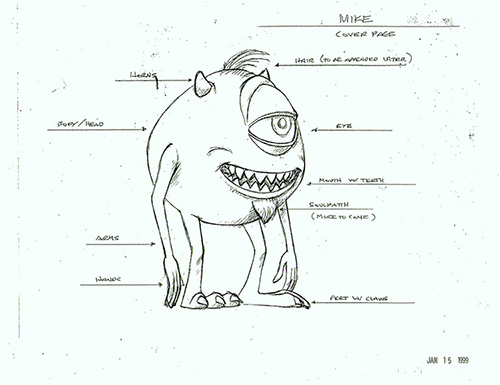 MIKE
COVER PAGE
HAIR (TO BE APPENDED LATER)
HORNS
BODY/HEAD
EYE
MOUTH W/ TEETH
SOULPATCH
(MORE TO COME)
ARMS
HANDS
FEET W/ CLAWS
JAN 15 1999